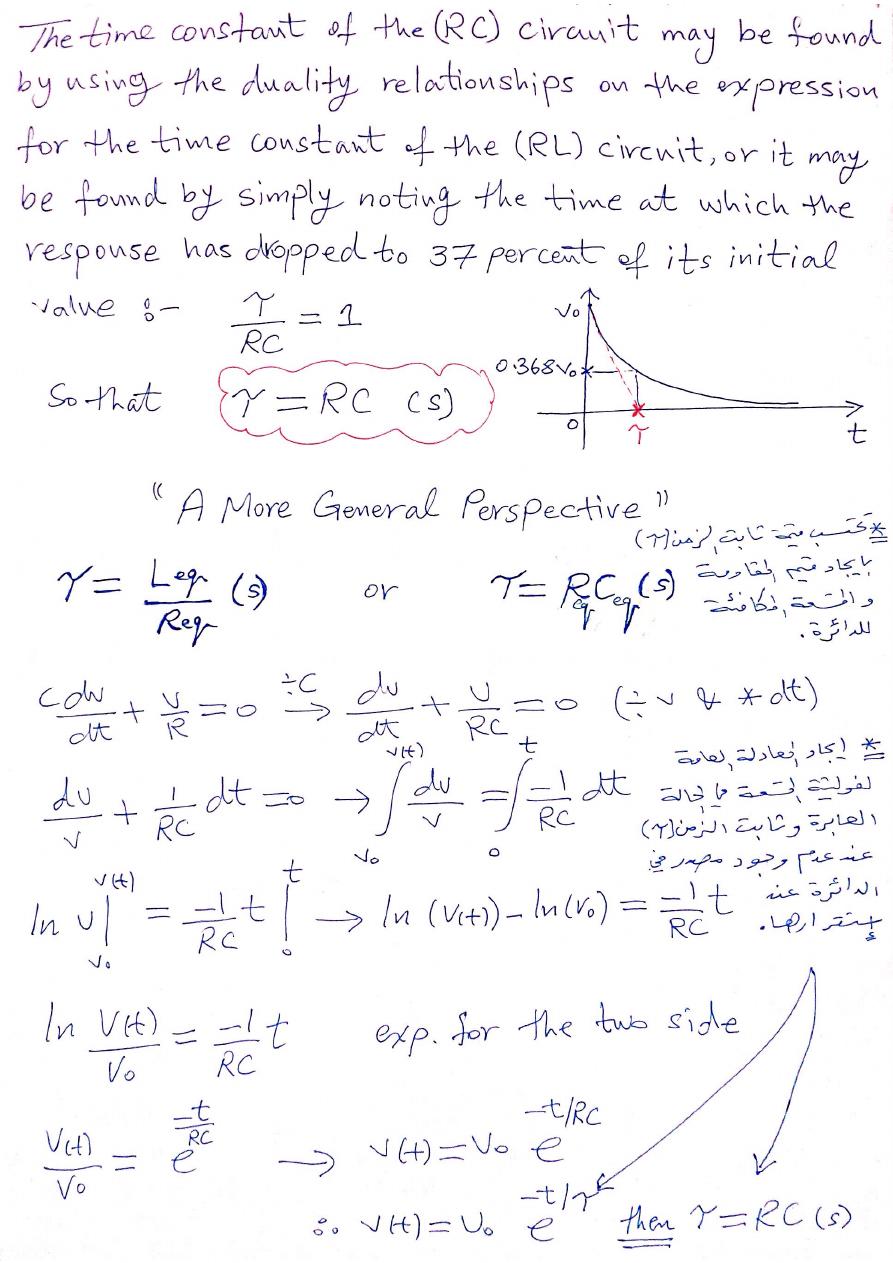 The time constant of the (RC) circuit may be found
by using the duality relationships on the expression
for the time constant of the (RL) circuit, or it may
be found by simply noting the time at which the
response has dropped to 37 percent of its initial
value :-
τ/RC = 1
So that τ = RC (s)
V₀
0.368V₀
0
τ
t
"A More General Perspective"
τ = Leq/Req (s) or τ = ReqCeq (s)
* تحتسب قيمة ثابت الزمن (τ)
بايجاد قيم المقاومة
والمتسعة المكافئة
للدائرة.
C dv/dt + v/R = 0 ÷C → dv/dt + v/RC = 0 (÷ v & * dt)
dv/v + 1/RC dt = 0 → ∫V₀^v(t) dv/v = ∫₀^t -1/RC dt
* ايجاد المعادلة العامة
لفولتية المتسعة في الحالة
العابرة وثابت الزمن (τ)
عند عدم وجود مصدر في
الدائرة عند
إستقرارها.
ln v |V₀^v(t) = -1/RC t |₀^t → ln (v(t)) - ln (V₀) = -1/RC t
ln V(t)/V₀ = -1/RC t exp. for the two side
V(t)/V₀ = e^(-t/RC) → v(t) = V₀ e^(-t/RC)
∴ v(t) = V₀ e^(-t/τ) then τ = RC (s)